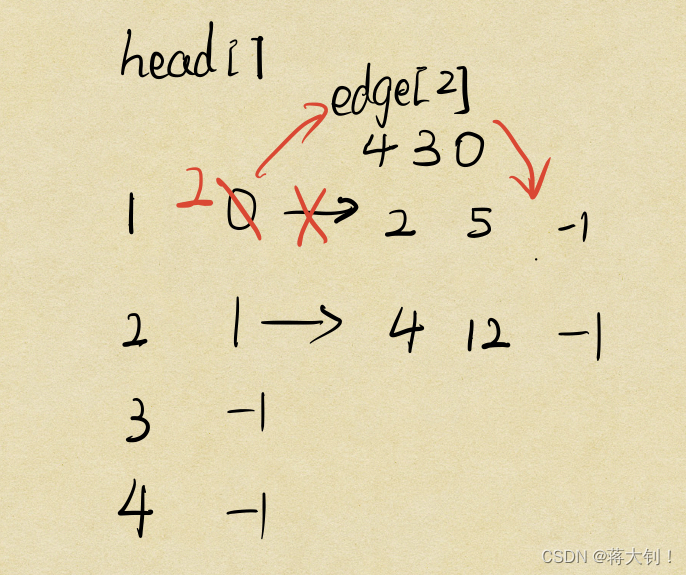 head[]
edge[2]
4 3 0
1 2 0 → 2 5 -1
2 1 → 4 12 -1
3 -1
4 -1
CSDN @蒋大钊！